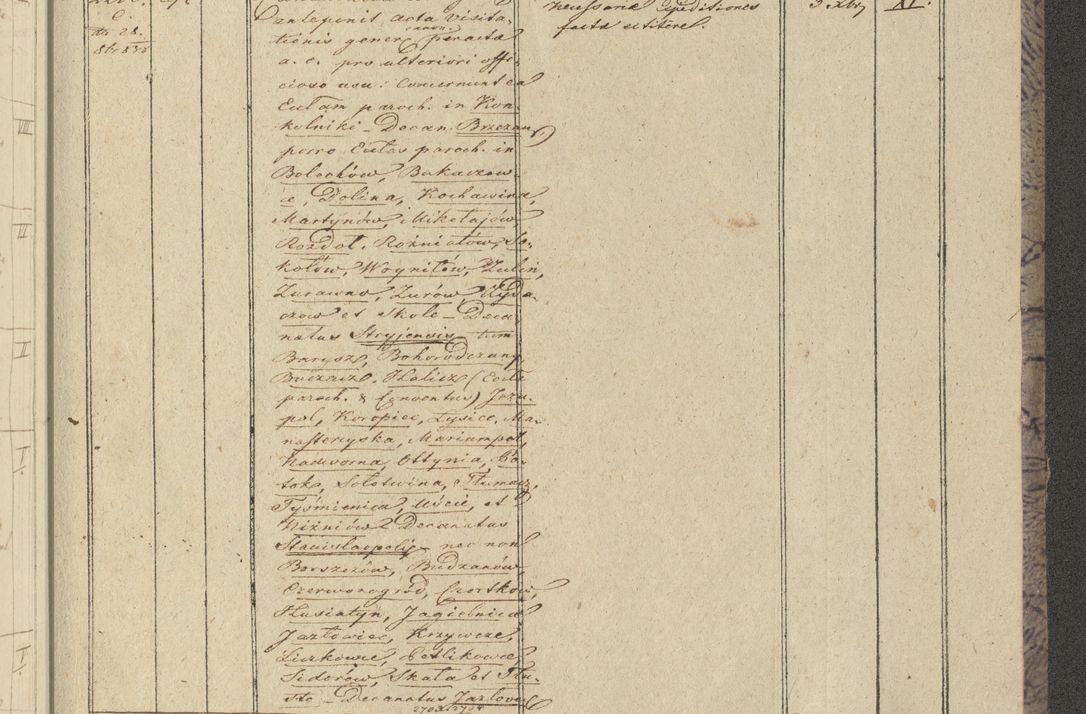 anteponit acta visita-
tionis gener. canon. peracta
a. c. pro ulteriori offi-
cioso usu: Concernunt ea
Eccl̃am paroch. in Kon-
kolniki – Decan. Brzezan.
porro Eccl̃as paroch. in
Bolechów, Bukaczow-
ce, Dolina, Kochawina,
Martynów, Mikołajów
Rozdoł, Rożniatów, So-
kołów, Woyniłów, Zulin,
Zurawno, Zurów, Zyda-
czow et Skole – Deca-
natus Stryjensis – tum
Barysz, Bohorodczany,
Buczacz, Halicz (Eccl̃a
paroch. & Conventus) Jezu-
pol, Koropiec, Łysiec, Mo-
nasterzyska, Mariampol,
Nadworna, Ottynia, Po-
tok, Sołotwina, Tłumacz,
Tyśmienica, Uście, et
Niżniów Decanatus
Stanislaopoliẽ – nec non
Borszczów, Budzanów,
Czerwonogród, Czortków,
Husiatyn, Jagielnica
Jazłowiec, Krzywcze,
Liczkowce, Petlikowce
Sidorów, Skała et Tłu-
ste – Decanatus Jazlovec
necessariae expeditiones
factae et literae.
3 Xbr
XI.
C.
28.